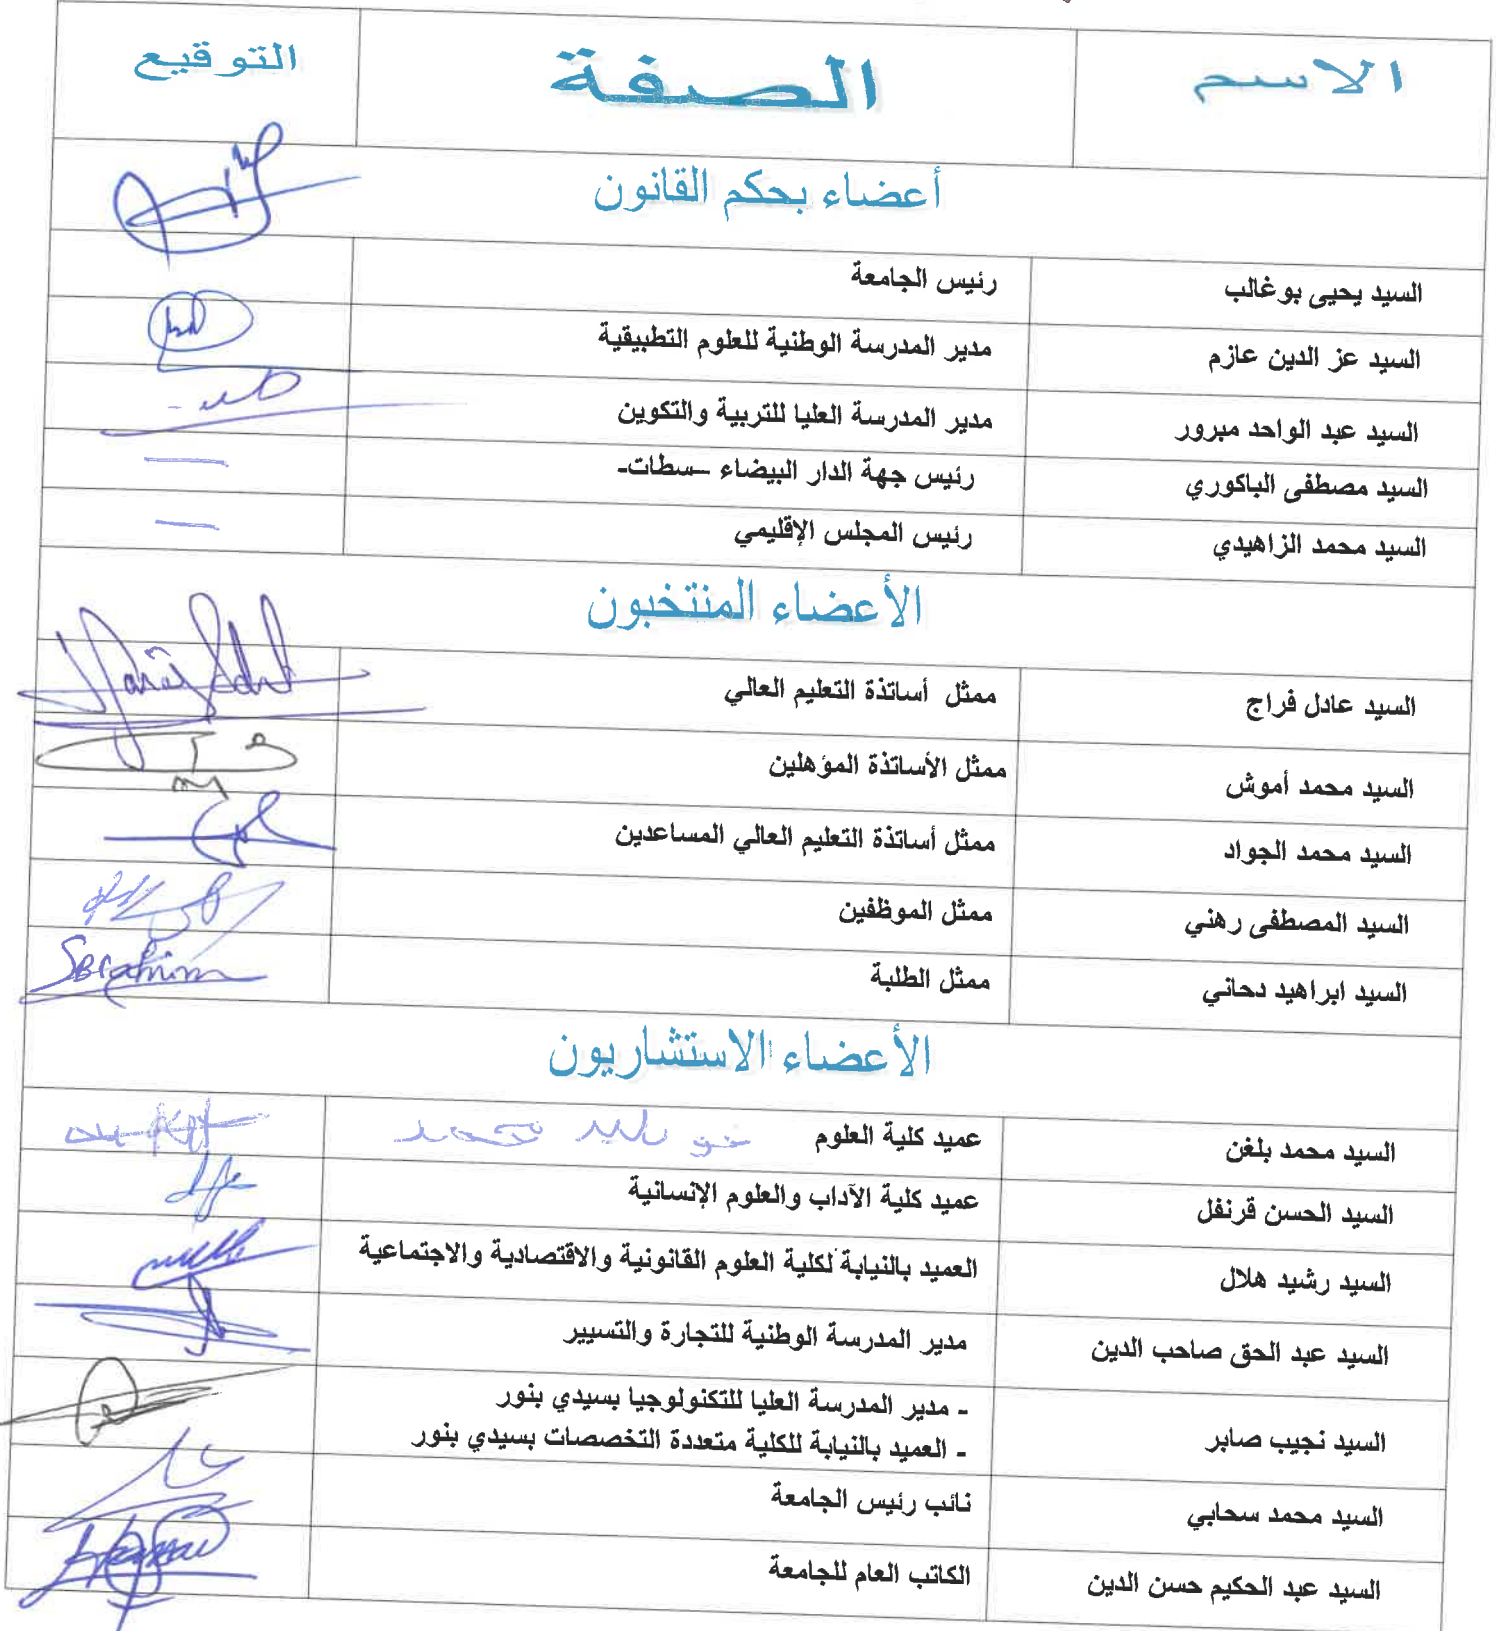 الاسم الصفة التوقيع
أعضاء بحكم القانون
السيد يحيى بوغالب رئيس الجامعة
السيد عز الدين عازم مدير المدرسة الوطنية للعلوم التطبيقية
السيد عبد الواحد مبرور مدير المدرسة العليا للتربية والتكوين
السيد مصطفى الباكوري رئيس جهة الدار البيضاء –سطات-
السيد محمد الزاهيدي رئيس المجلس الإقليمي
الأعضاء المنتخبون
السيد عادل فراج ممثل أساتذة التعليم العالي
السيد محمد أموش ممثل الأساتذة المؤهلين
السيد محمد الجواد ممثل أساتذة التعليم العالي المساعدين
السيد المصطفى رهني ممثل الموظفين
السيد ابراهيد دحاني ممثل الطلبة
الأعضاء الاستشاريون
السيد محمد بلغن عميد كلية العلوم
السيد الحسن قرنفل عميد كلية الآداب والعلوم الإنسانية
السيد رشيد هلال العميد بالنيابة لكلية العلوم القانونية والاقتصادية والاجتماعية
السيد عبد الحق صاحب الدين مدير المدرسة الوطنية للتجارة والتسيير
السيد نجيب صابر - مدير المدرسة العليا للتكنولوجيا بسيدي بنور
- العميد بالنيابة للكلية متعددة التخصصات بسيدي بنور
السيد محمد سحابي نائب رئيس الجامعة
السيد عبد الحكيم حسن الدين الكاتب العام للجامعة